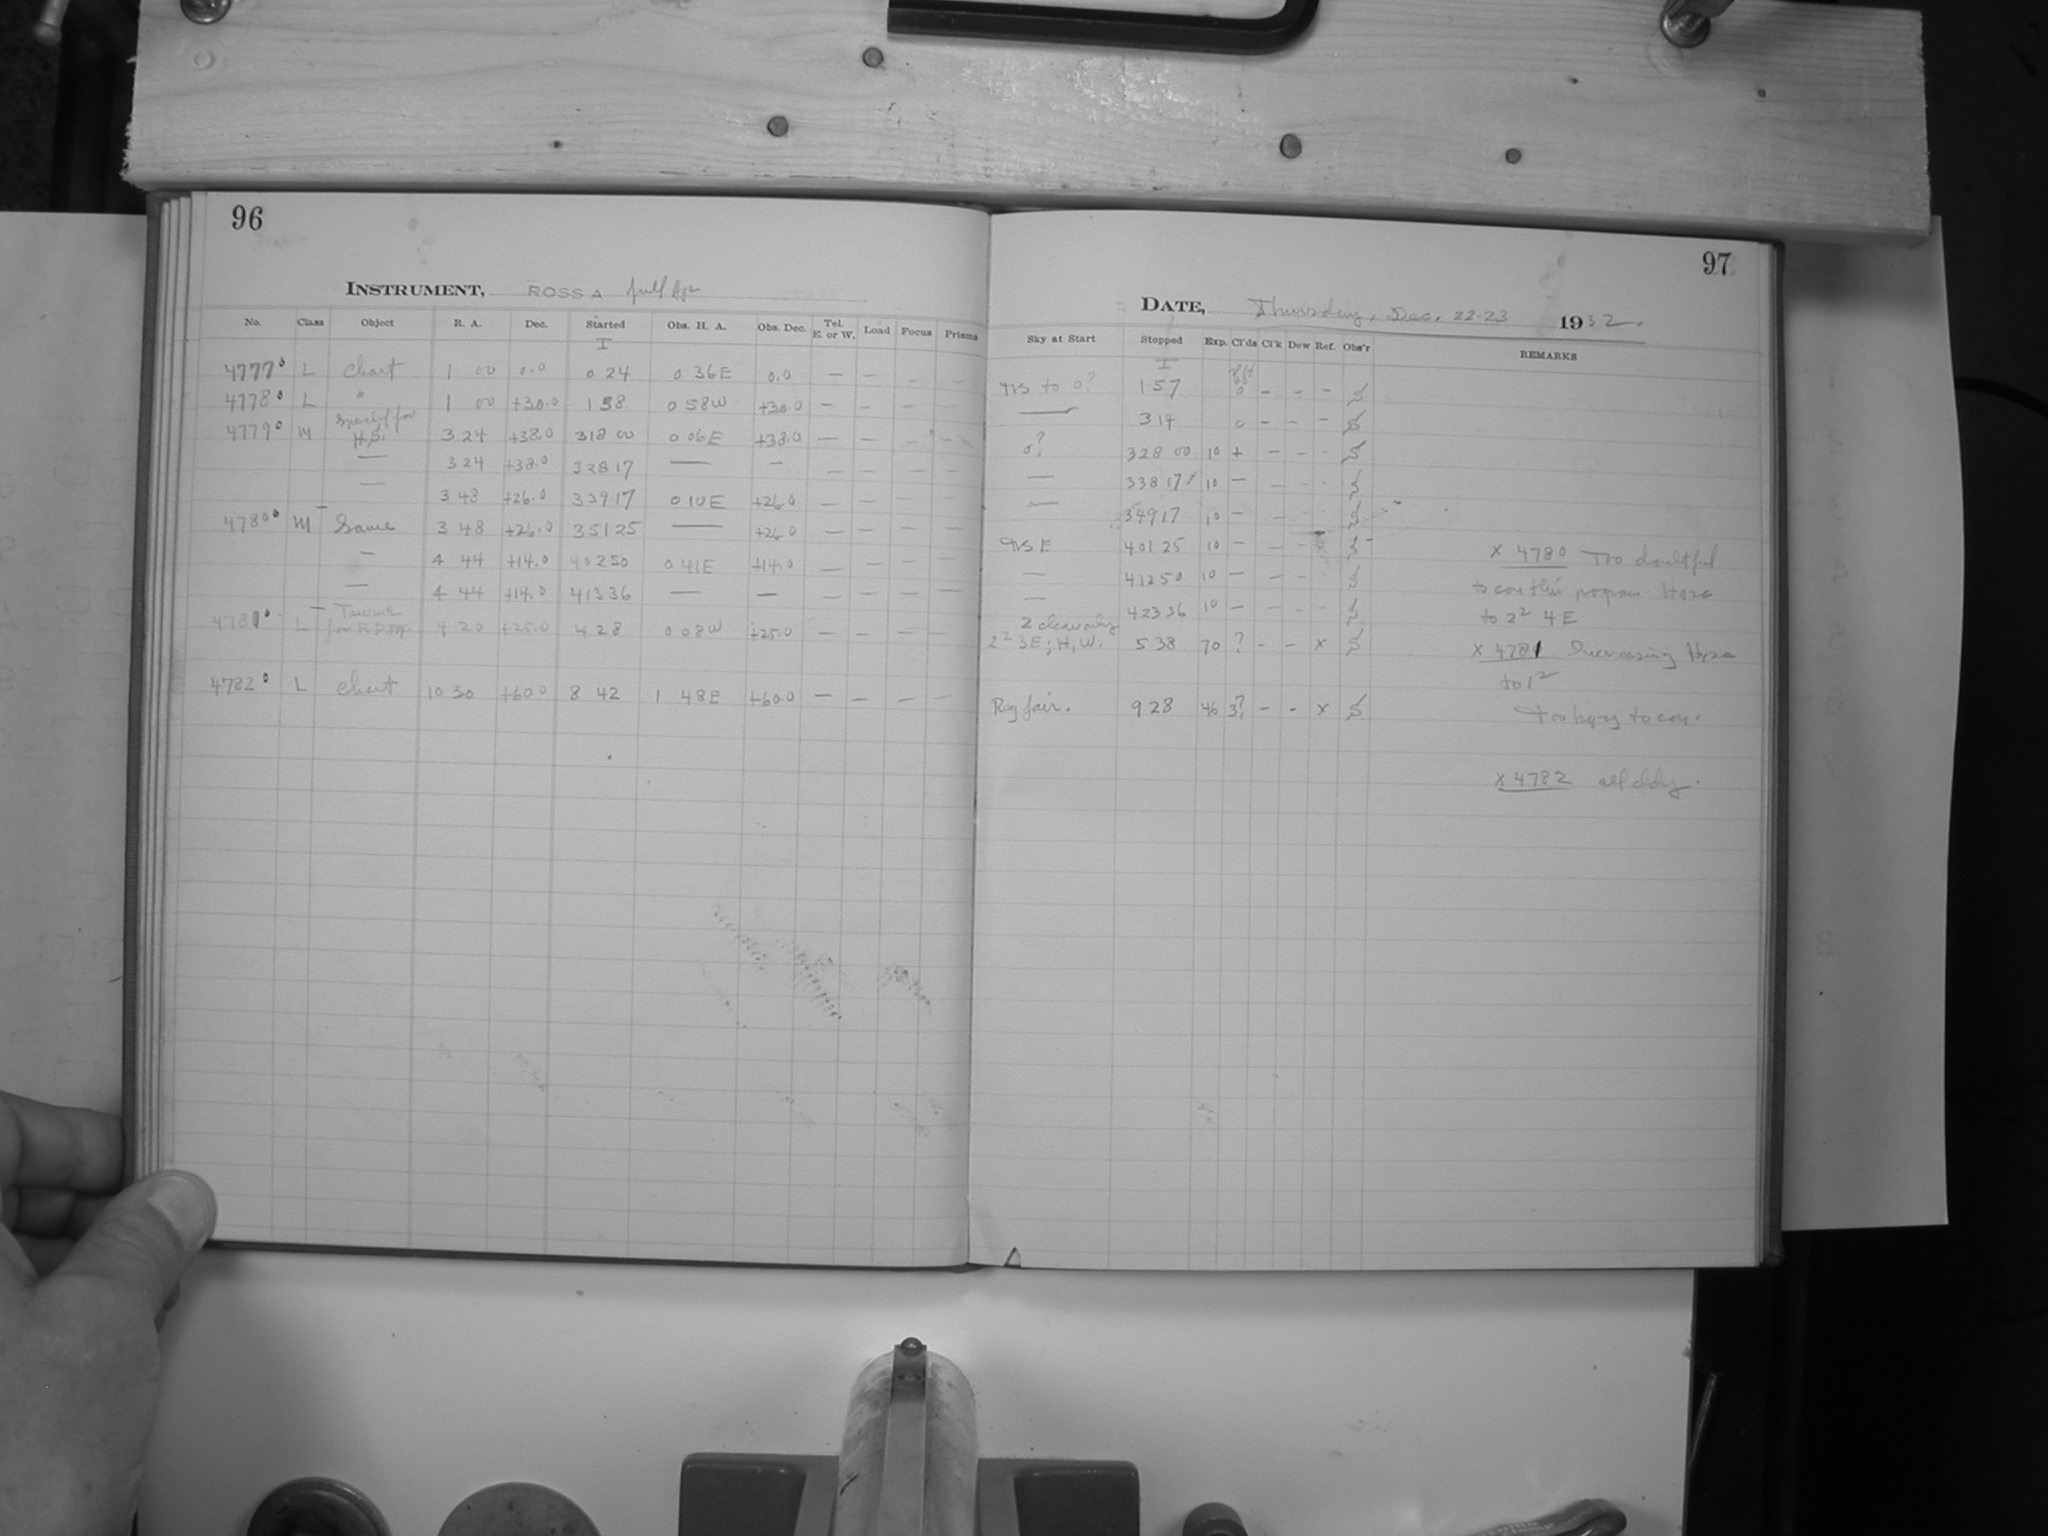 96
INSTRUMENT, ROSS A full Ap
No. Class Object R. A. Dec. Started Obs. H. A. Obs. Dec. Tel. E. or W. Load Focus Prisms
I
4777° L Chart 1 00 0.0 0 24 0 36E 0.0 — — - -
4778° L " 1 00 +30.0 1 58 0 58W +30.0 — — -
4779° M Special for H.S. 3 24 +38.0 318 00 0 06E +38.0 — — - - -
— 3 24 +38.0 328 17 — — — — — —
— 3 48 +26.0 339 17 0 10E +26.0 — — — —
4780° M Same 3 48 +26.0 351 25 — +26.0 — — — —
— 4 44 +14.0 402 50 0 41E +14.0 — — — —
— 4 44 +14.0 413 36 — — — — — —
4781° L Taurus 4 20 +25.0 4 28 0 08W +25.0 — — — —
4782° L Chart 10 30 +60.0 8 42 1 48E +60.0 — — — —
97
DATE, Thursday, Dec. 22-23 1932.
Sky at Start Stopped Exp. Cl'ds Cl'k Dew Ref. Obs'r REMARKS
I
to 0? 1 57 0 - - - S
— 3 14 0 - - - S
0? 328 00 10 + - - - S
— 338 17 10 — - - - S
— 349 17 10 — - - - S
401 25 10 — - - S
— 412 50 10 — - - - S
— 423 36 10 — - - - S
2² 3E; H, W. 5 38 70 ? - - x S
Reg fair. 9 28 46 3? - - x S
x 4780 Too doubtful
to con this program. Haze
to 2² 4E
x 4781 Increasing Haze
to 1²
Too hazy to con.
x 4782 all cldy.